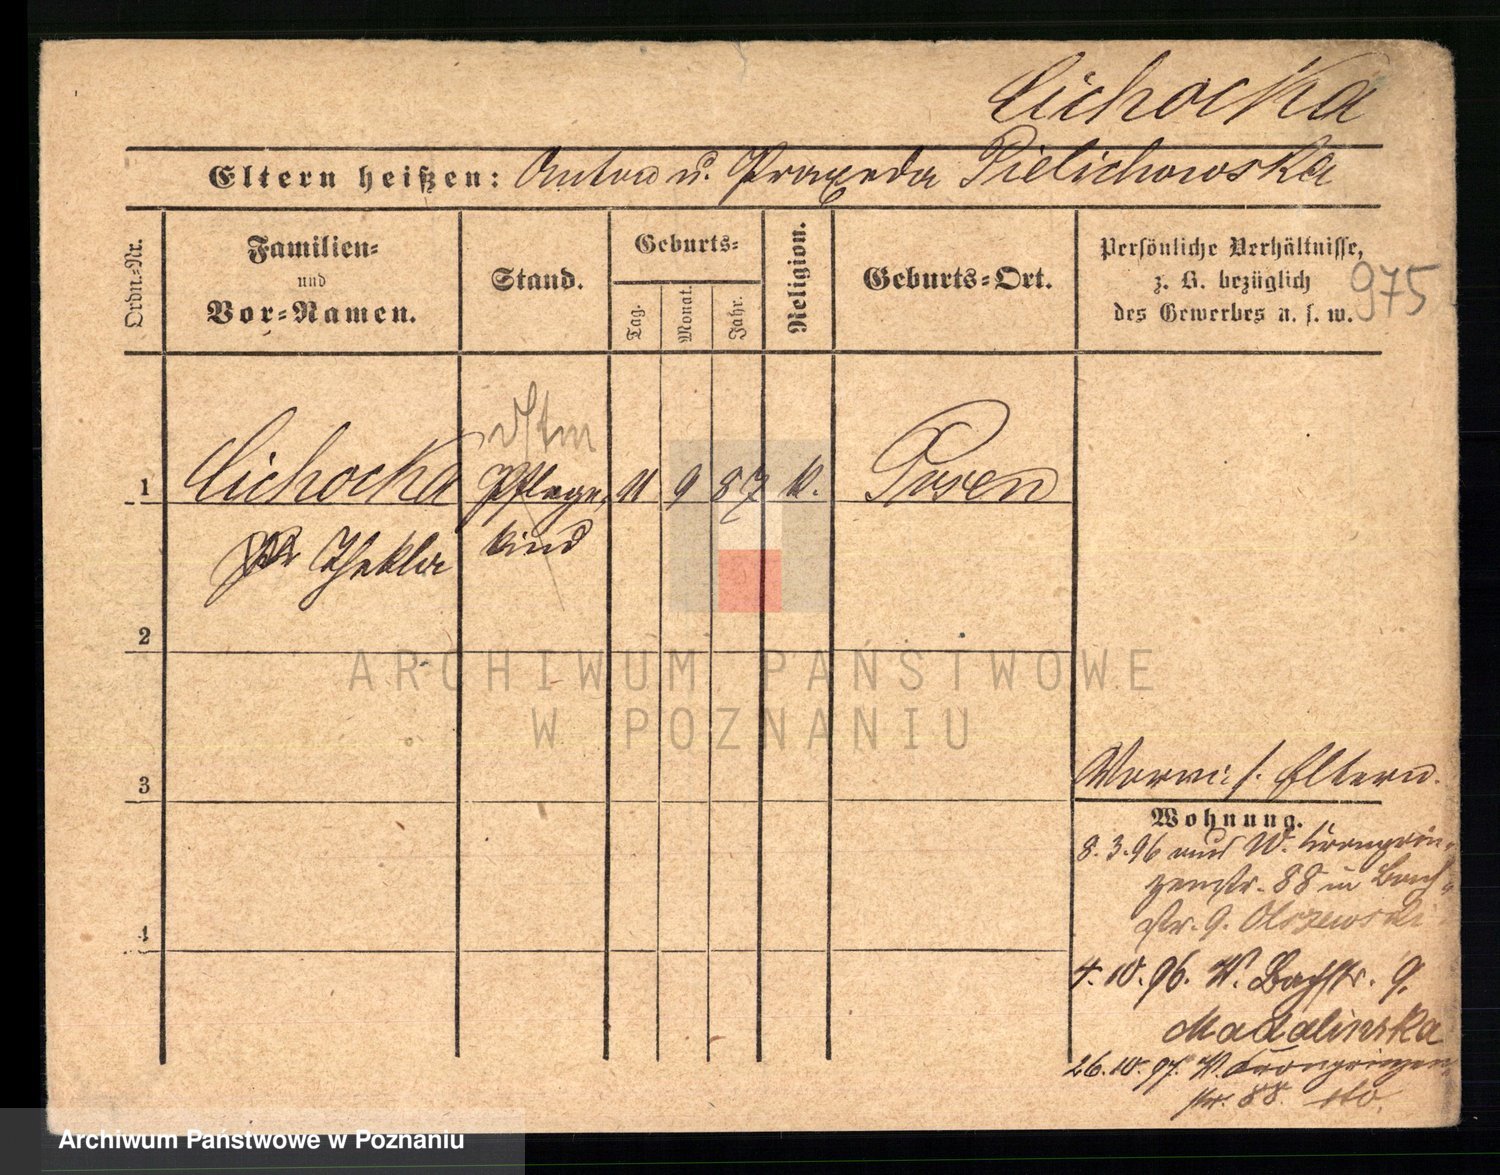 Cichocka
Eltern heißen: Anton u. Praxeda Pielichowska
Ordn.-Nr.
Familien-
und
Vor-Namen.
Stand.
Geburts-
Tag.
Monat.
Jahr.
Religion.
Geburts-Ort.
Persönliche Verhältnisse,
z. B. bezüglich
des Gewerbes u. s. w.
975
1
Cichocka
Thekla
Pflege,
kind
11 9 87 k.
Posen
2
3
4
Eltern.
Wohnung.
8.3.96 W. Kronprin-
zenstr. 88 in Bach-
str. 9. Olszewski
4.10.96. W. Bachstr. 9.
Madalinska
26.10.97. W. Kronprinzen
str. 88.
ARCHIWUM PAŃSTWOWE
W POZNANIU
Archiwum Państwowe w Poznaniu